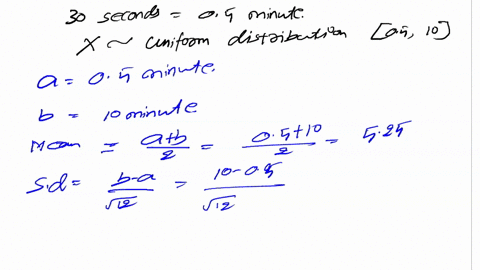 30 seconds = 0.5 minute.
X ~ uniform distribution [0.5, 10]
a = 0.5 minute.
b = 10 minute
Mean = a+b/2 = 0.5+10/2 = 5.25
S.d = b-a/√12 = 10-0.5/√12